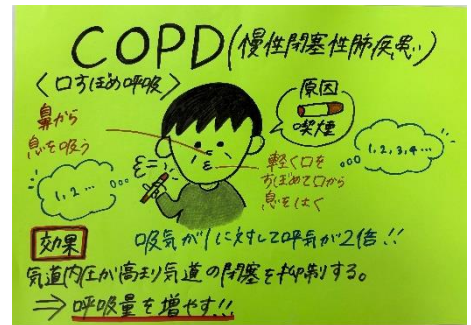 COPD(慢性閉塞性肺疾患)
〈口すぼめ呼吸〉
鼻から
息を吸う
原因
喫煙
1,2…
1,2,3,4…
軽く口を
すぼめて口から
息をはく
効果
吸気が1に対して呼気が2倍!!
気道内圧が高まり気道の閉塞を抑制する。
⇒呼吸量を増やす!!